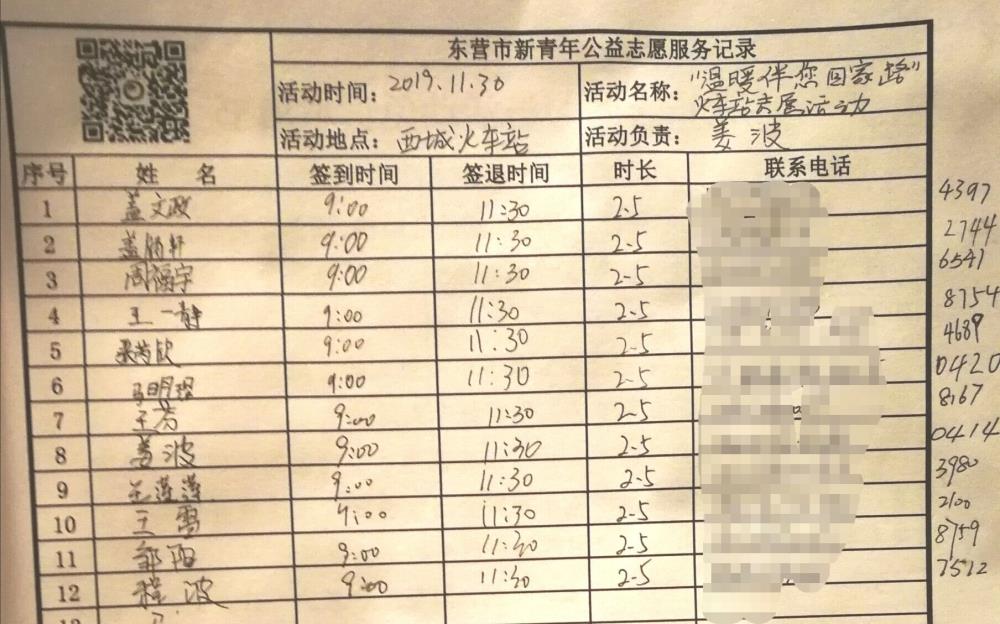 东营市新青年公益志愿服务记录
活动时间: 2019.11.30 活动名称: "温暖伴您回家路"
火车站志愿活动
活动地点: 西城火车站 活动负责: 姜波
序号 姓 名 签到时间 签退时间 时长 联系电话
1 盖文政 9:00 11:30 2.5 4397
2 盖 轩 9:00 11:30 2.5 2744
3 周福宇 9:00 11:30 2.5 6541
4 王一静 9:00 11:30 2.5 8754
5 欣 9:00 11:30 2.5 4689
6 马明 9:00 11:30 2.5 0420
7 王芳 9:00 11:30 2.5 8167
8 姜波 9:00 11:30 2.5 0414
9 9:00 11:30 2.5 3980
10 王雪 9:00 11:30 2.5 2100
11 邹阳 9:00 11:30 2.5 8759
12 程波 9:00 11:30 2.5 7512
13